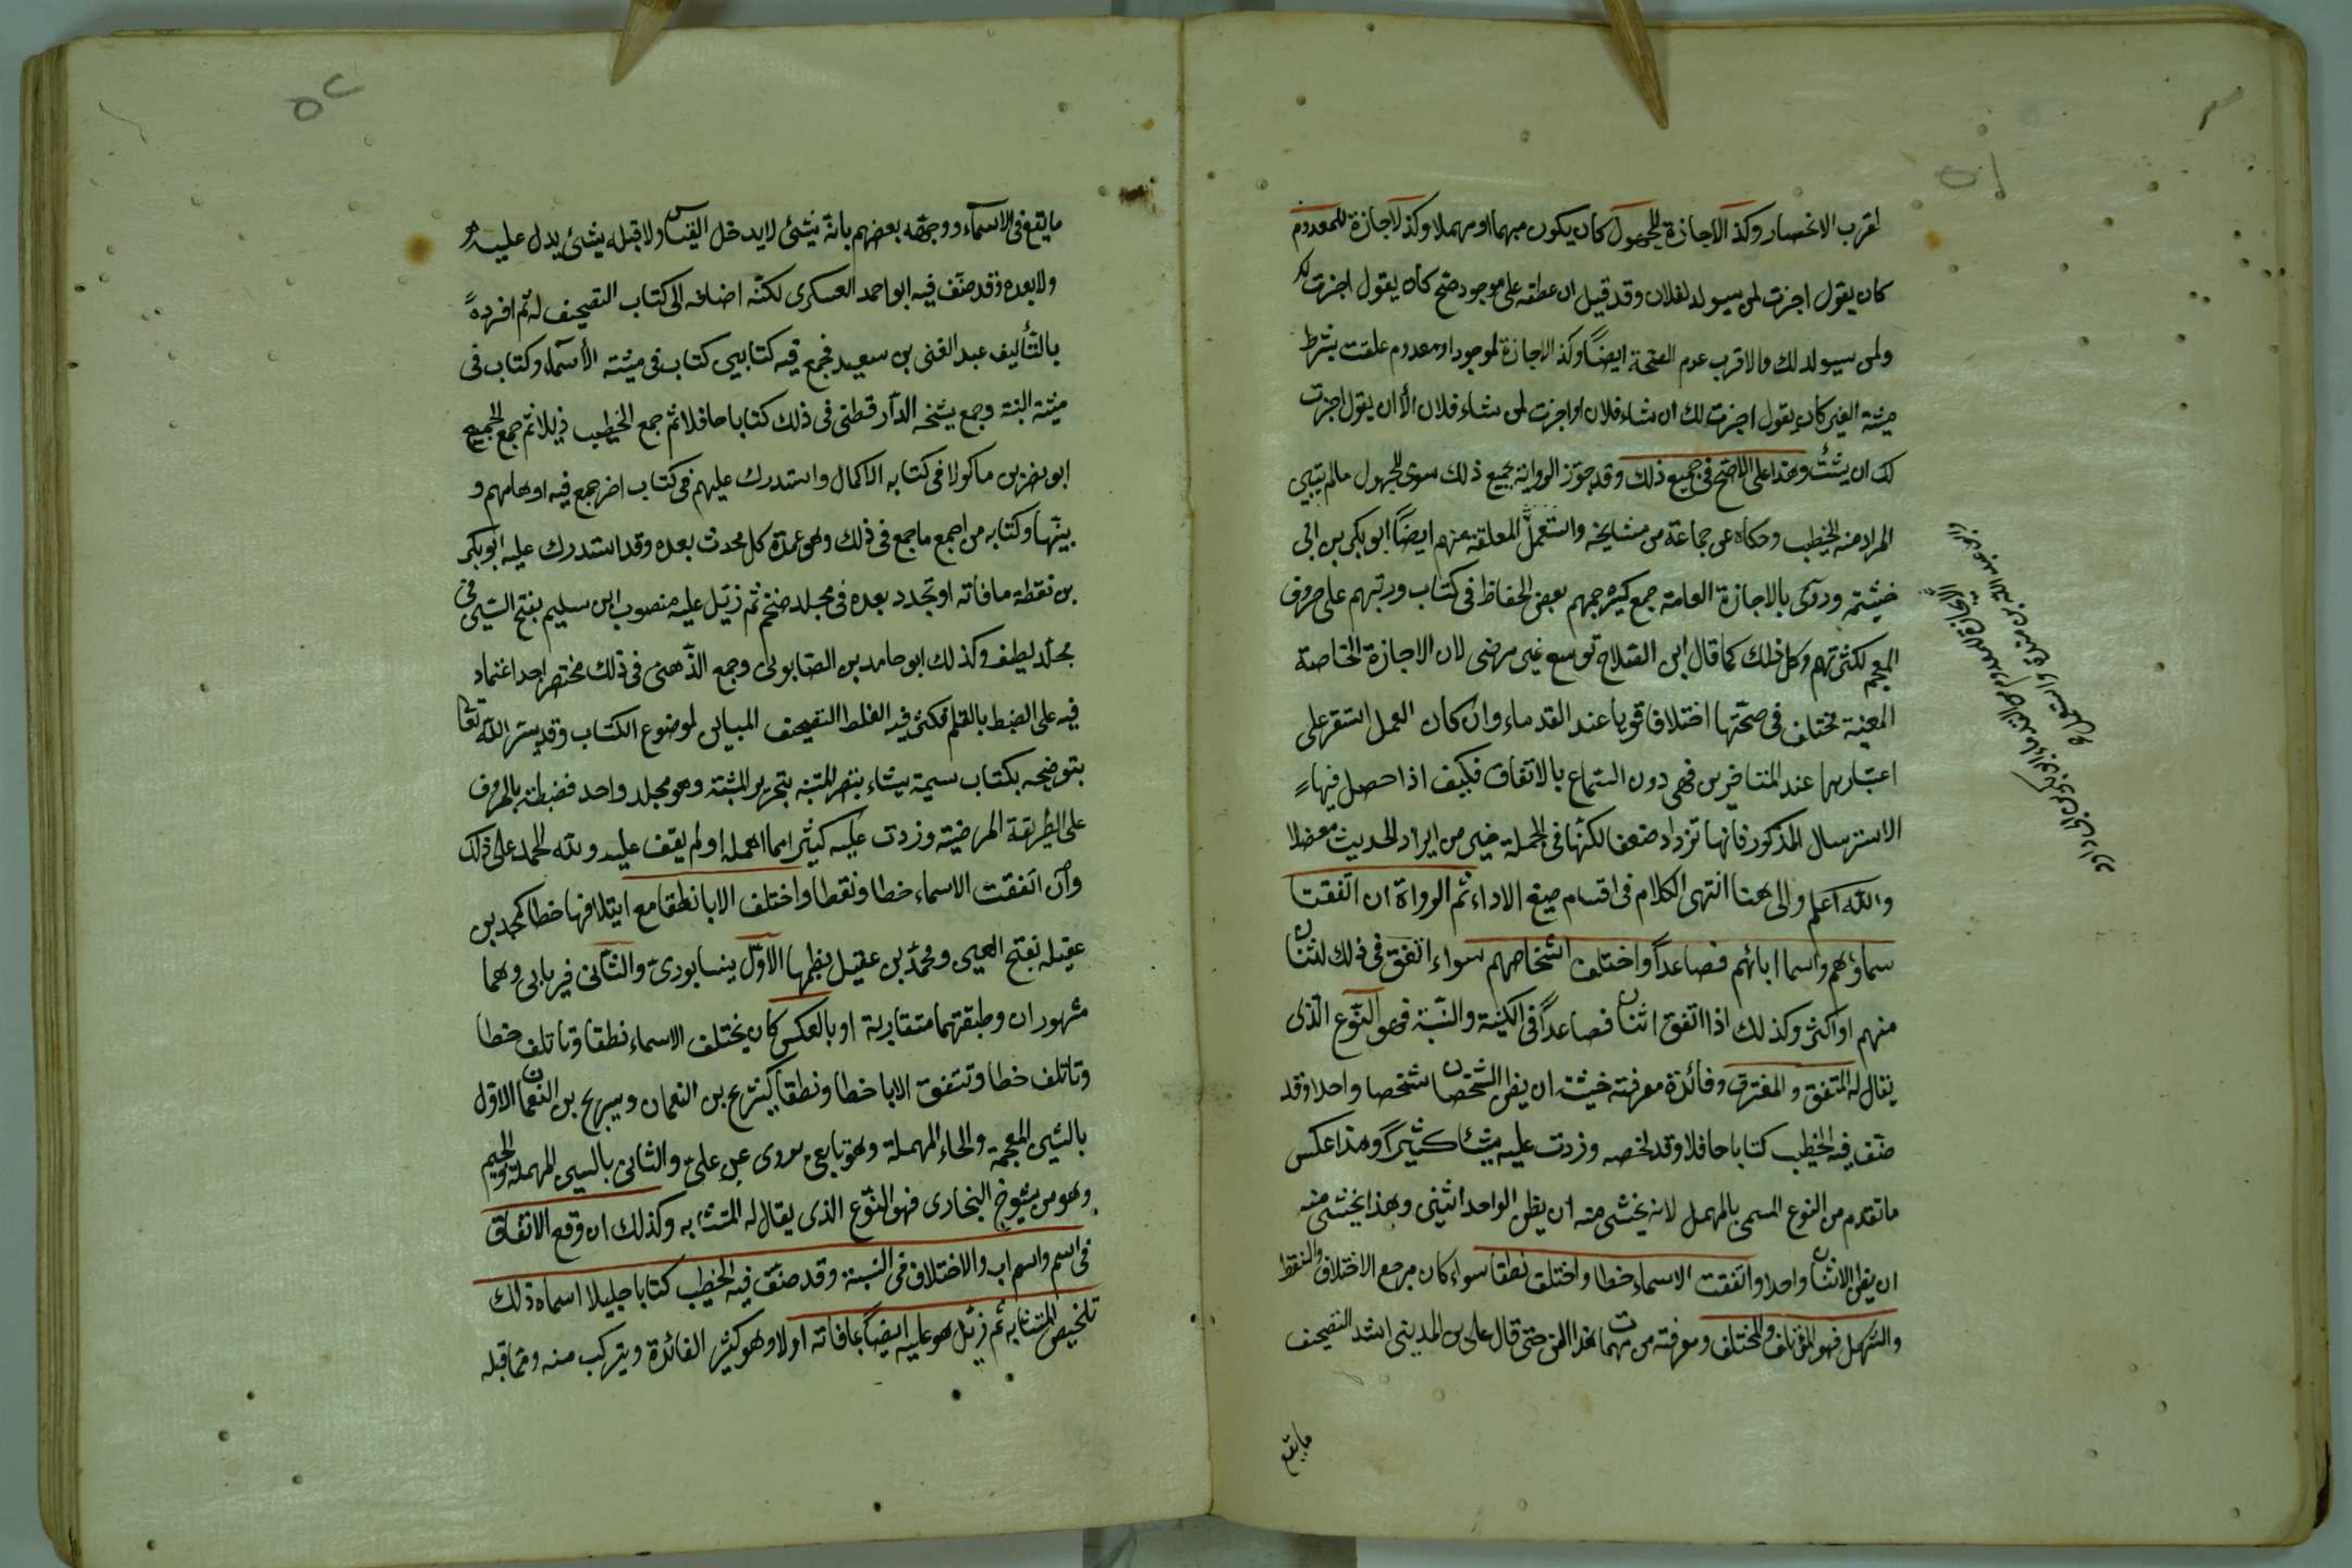 لقرب الانحصار وكذ الاجازة للمجهول كان يكون مبهما او مهملا وكذ لاجازة للمعدوم
كان يقول اجزت لمن سيولد لفلان وقد قيل ان عطفه على موجود صح كان يقول اجزت لك
ولمن سيولد لك والاقرب عدم الصحة ايضا وكذ الاجازة لموجود او معدوم علقت بشرط
مشية الغير كان يقول اجزت لك ان شاء فلان او اجزت لمن شاء فلان الا ان يقول اجزت
لك ان شئت وهذا على الاصح في جميع ذلك وقد جوز الرواية بجميع ذلك سوى المجهول ما لم يتبين
المراد منه الخطيب وحكاه عن جماعة من مشايخه واستعمل المعلقة منهم ايضا ابو بكر بن ابي
خيثمة وروى بالاجازة العامة جمع كثير جمعهم بعض الحفاظ في كتاب ورتبهم على حروف
المعجم لكثرتهم وكل ذلك كما قال ابن الصلاح توسع غير مرضي لان الاجازة الخاصة
المعينة مختلف في صحتها اختلافا قويا عند القدماء وان كان العمل استقر على
اعتبارها عند المتاخرين فهي دون السماع بالاتفاق فكيف اذا حصل فيها
الاسترسال المذكور فانها تزداد ضعفا لكنها في الجملة خير من ايراد الحديث معضلا
والله اعلم والى هنا انتهى الكلام في اقسام صيغ الاداء ثم الرواة ان اتفقت
سماؤهم واسما ابائهم فصاعدا واختلف اشخاصهم سواء اتفق في ذلك لثنان
منهم او اكثر وكذلك اذا اتفق اثنان فصاعدا في الكنية والنسبة فهو النوع الذي
يقال له المتفق والمفترق وفائدة معرفته خشية ان يظن الشخصان شخصا واحدا وقد
صنف فيه الخطيب كتابا حافلا وقد لخصه وزدت عليه شئا كثيرا وهذا عكس
ما تقدم من النوع المسمى بالمهمل لانه يخشى منه ان يظن الواحد اثنين وهذا يخشى منه
ان يظن الاثنان واحدا واتفقت الاسماء خطا واختلف نطقا سواء كان مرجع الاختلاف والنقط
والشكل فهو المؤتلف والمختلف ومعرفته من مهمات هذا الفن حتى قال علي بن المديني اشد التصحيف
ما يقع
الاجازة للمعدوم من القدماء ابو بكر بن ابي داود
وابو عبد الله بن مندة واستعمل
ما يقع في الاسماء ووجهه بعضهم بانه شئ لا يدخل القياس ولا قبله شئ يدل عليه
ولا بعده وقد صنف فيه ابو احمد العسكري لكنه اضافه الى كتاب التصحيف له ثم افرده
بالتأليف عبد الغني بن سعيد فجمع فيه كتابين كتاب في مشتبه الاسماء وكتاب في
مشتبه النسبة وجمع شيخه الدار قطني في ذلك كتابا حافلا ثم جمع الخطيب ذيلا ثم جمع الجميع
ابو نصر بن ماكولا في كتابه الاكمال واستدرك عليهم في كتاب اخر جمع فيه اوهامهم و
بينها وكتابه من اجمع ما جمع في ذلك وهو عمدة كل محدث بعده وقد استدرك عليه ابو بكر
بن نقطة ما فاته او تجدد بعده في مجلد ضخم ثم ذيل عليه منصور ابن سليم بفتح السين في
مجلد لطيف وكذلك ابو حامد بن الصابوني وجمع الذهبي في ذلك مختصرا جدا اعتماد
فيه على الضبط بالقلم فكثر فيه الغلط التصحيف المباين لموضوع الكتاب وقد يسر الله تعا
بتوضيحه بكتاب سميته تبصير المتنبه بتحرير المشتبه وهو مجلد واحد فضبطته بالحروف
على الطريقة المرضية وزدت عليه كثيرا مما اهمله او لم يقف عليه ولله الحمد على ذلك
وان اتفقت الاسماء خطا ونقطا واختلف الابا نطقا مع ايتلافها خطا كمحمد بن
عقيل بفتح العين ومحمد بن عقيل بضمها الاول نيسابوري والثاني فريابي وهما
مشهوران وطبقتهما متقاربة او بالعكس كان يختلف الاسماء نطقا وتاتلف خطا
وتاتلف خطا وتتفق الابا خطا ونطقا كشريح بن النعمان وسريج بن النعمان الاول
بالشين المعجمة والحاء المهملة وهو تابعي يروى عن علي والثاني بالسين المهملة والجيم
وهو من شيوخ البخاري فهو النوع الذي يقال له المتشابه وكذلك ان وقع الاتفاق
في اسم واسم اب والاختلاف في النسبة وقد صنف فيه الخطيب كتابا جليلا اسماه ذلك
تلخيص المتشابه ثم ذيل هو عليه ايضا بما فاته اولا وهو كثير الفائدة ويتركب منه ومما قبله